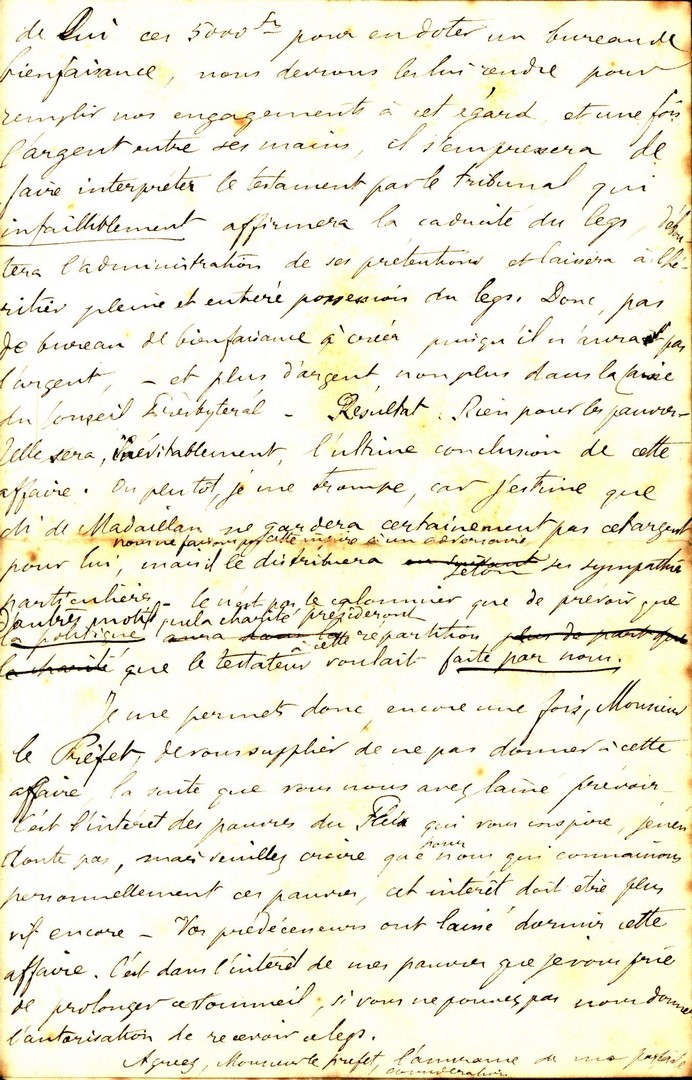 de Lui ces 5000 fr pour en doter un bureau de
bienfaisance, nous devrons les lui rendre pour
remplir nos engagements à cet égard, et une fois
l'argent entre ses mains, il s'empressera de
faire interpréter le testament par le tribunal qui
infailliblement affirmera la caducité du legs, débou-
tera l'administration de ses prétentions et laissera à l'hé-
ritier pleine et entière possession du legs. Donc, pas
de bureau de bienfaisance à créer puisqu'il n'aura pas
l'argent, - et plus d'argent non plus dans la caisse
du Conseil Presbytéral - Résultat : Rien pour les pauvres-
Telle sera, inévitablement, l'ultime conclusion de cette
affaire. Ou plutôt, je me trompe, car j'estime que
M. de Madaillan ne gardera certainement pas cet argent
nous ne faisons pas cette injure à un adversaire
pour lui, mais il le distribuera en suivant selon ses sympathies
particulières - Ce n'est pas le calomnier que de prévoir que
d'autres motifs que la charité présideront
la politique aura dans la à cette répartition plus de part que
la charité que le testateur voulait faite par nous.
Je me permets donc, encore une fois, Monsieur
le Préfet, de vous supplier de ne pas donner à cette
affaire, la suite que vous nous avez laissé prévoir-
C'est l'intérêt des pauvres du Fleix qui vous inspire, je n'en
doute pas, mais veuillez croire que pour nous qui connaissons
personnellement ces pauvres, cet intérêt doit être plus
vif encore - Vos prédécesseurs ont laissé dormir cette
affaire. C'est dans l'intérêt de mes pauvres que je vous prie
de prolonger ce sommeil, si vous ne pouvez pas nous donner
l'autorisation de recevoir ce legs.
Agréez, Monsieur le préfet, l'assurance de ma
considération